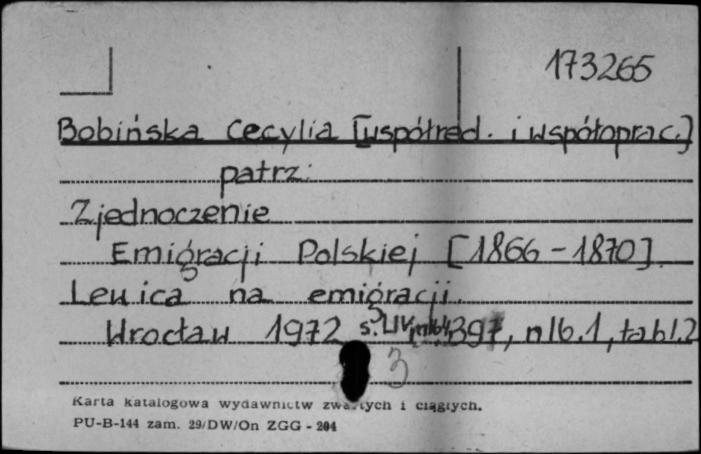 173265
Bobińska Cecylia [współred. i współoprac.]
patrz:
Zjednoczenie
Emigracji Polskiej [1866-1870].
Lewica na emigracji.
Wrocław 1972 s. LIV, nlb. 397, nlb. 1, tabl. 2
3
Karta katalogowa wydawnictw zwartych i ciągłych.
PU-B-144 zam. 29/DW/On ZGG - 204